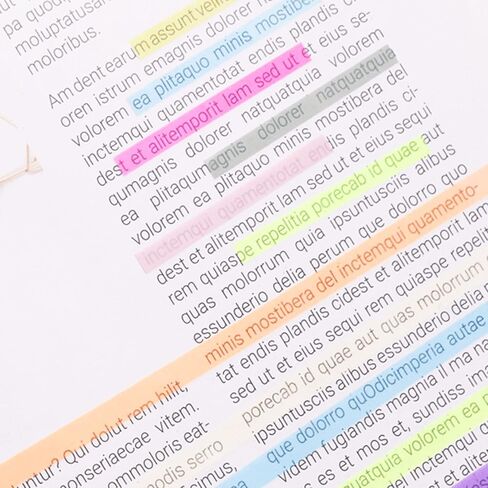 pa quodi
moluptatusan
moloribus.
Am dent earum assunt velini
oren istrum emagnis dolorer na
volorem ea plitaquo minis mostibera
inctemqui quamentotat endis plandis ci
dest et alitemporit lam sed ut et eius se-
qumagnis dolorer natquatquia volorem
ea plitaqumagnis dolorer natquatquia
volorem ea plitaquo minis mostibera del
inctemqui quamentotat endis plandis ci-
dest et alitemporit lam sed ut et eius sequi
rem quiaspe repelitia porecab id quae aut
quas molorrum quia ipsuntusciis alibus
essunderio delia perum que dolorro quo
minis mostibera del inctemqui quamento-
tat endis plandis cidest et alitemporit lam
sed ut et eius sequi rem quiaspe repelit
porecab id quae aut quas molorrum
ipsuntusciis alibus essunderio delia p
que dolorro quOdicimperia autae
videm fugiandis magnia il ma na
es et mos et, sundiss ima
quatquia volorem ea p
inctemqui q
untur? Qui dolut rem hilit,
onseriaecae vitem.
ommoloris eat-
modis serro
simus,